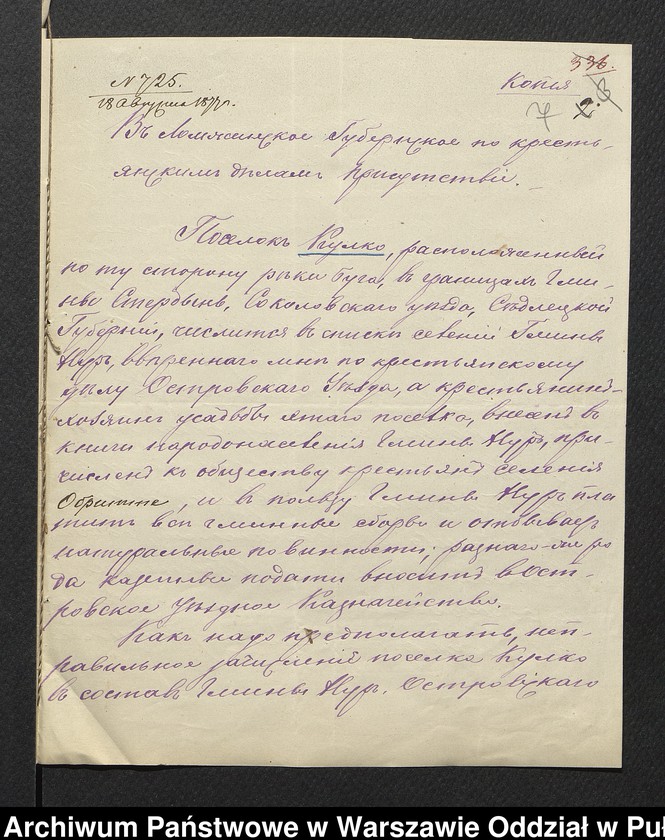 336.
N 725.
Копія
18 Августа 1877 г.
7 2.
Въ Ломжинское Губернское по кресть-
янскимъ дѣламъ присутствіе.
Поселокъ Кулко, расположенный
по ту сторону рѣки Буга, въ границахъ Гми-
ны Стердынь, Соколовскаго уѣзда, Сѣдлецкой
Губерніи, числится въ спискѣ селеній Гмины
Нуръ, ввѣреннаго мнѣ по крестьянскому
дѣлу Островскаго Уѣзда, а крестьянинъ-
хозяинъ усадьбы этаго поселка, внесенъ въ
книги народонаселенія Гмины Нуръ, при-
численъ къ обществу крестьянъ селенія
Обрытте, и въ пользу Гмины Нуръ пла
титъ всѣ гминные сборы и отбываетъ
натуральные повинности; разнаго-же ро
да казенные подати вноситъ въ Ост-
ровское Уѣздное Казначейство.
Какъ надо предполагать, неп-
равильное зачисленіе поселка Кулко
въ составъ Гмины Нуръ, Островскаго
Archiwum Państwowe w Warszawie Oddział w Pu